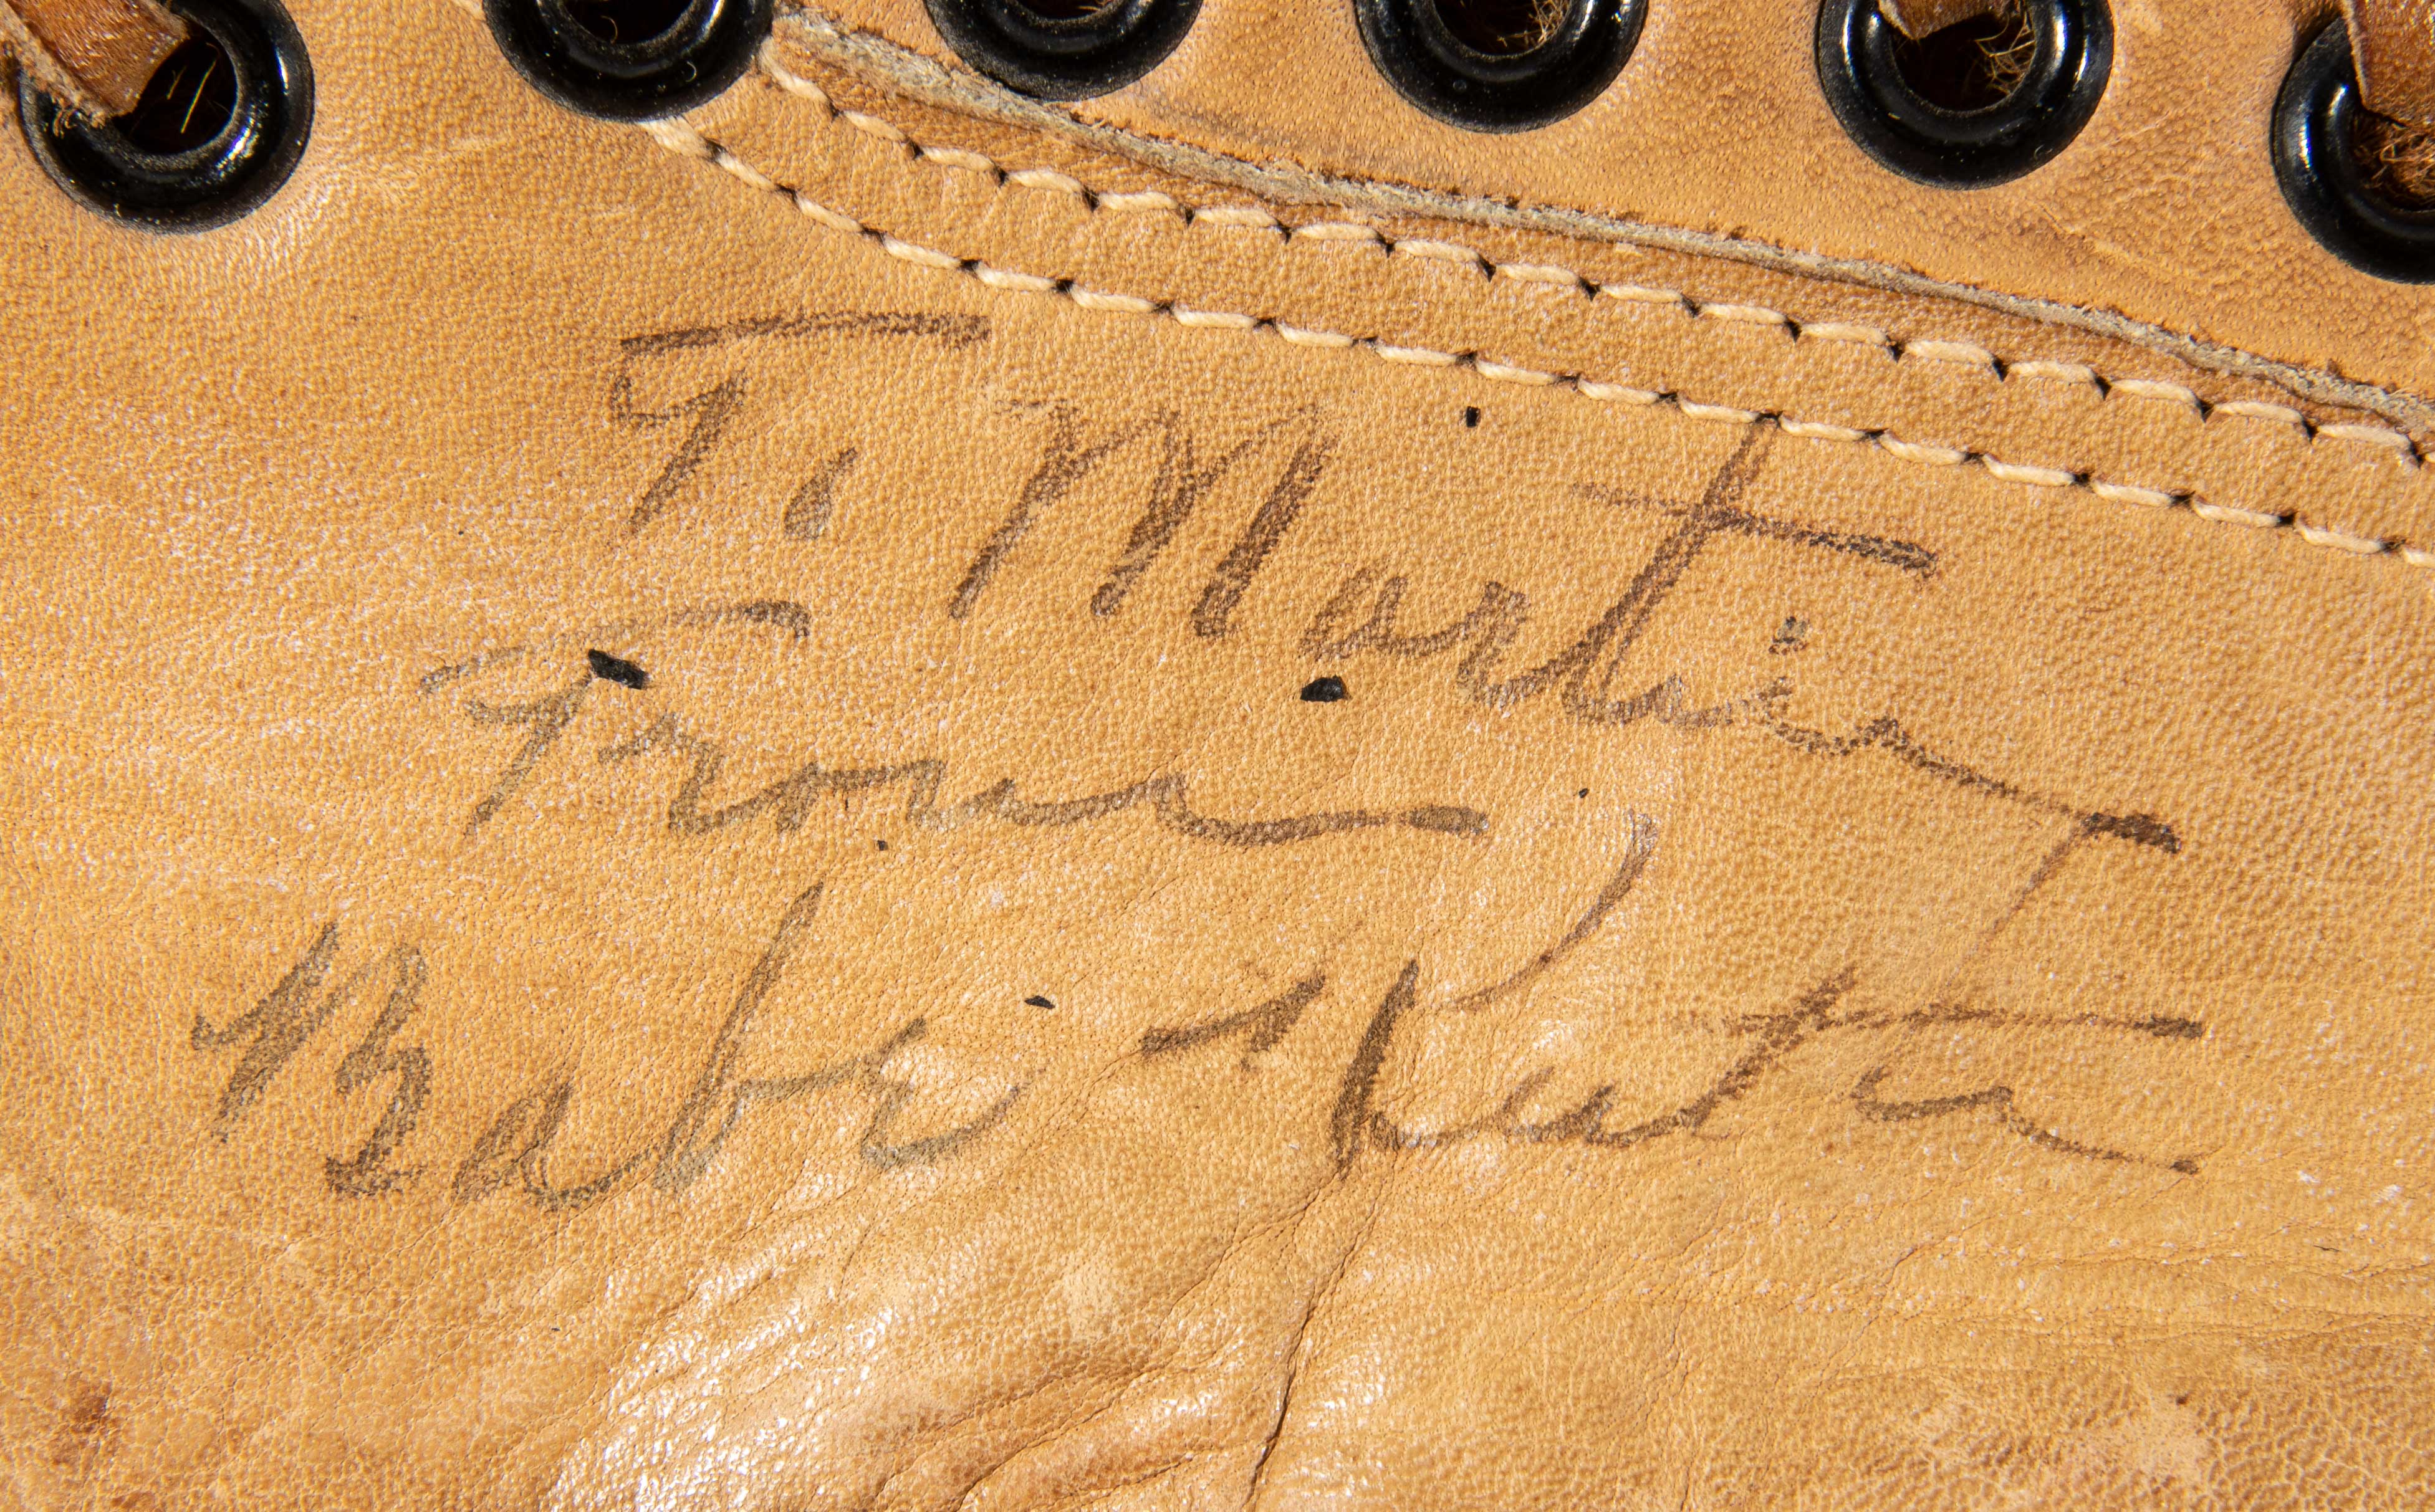 To Martin
From
Babe Ruth